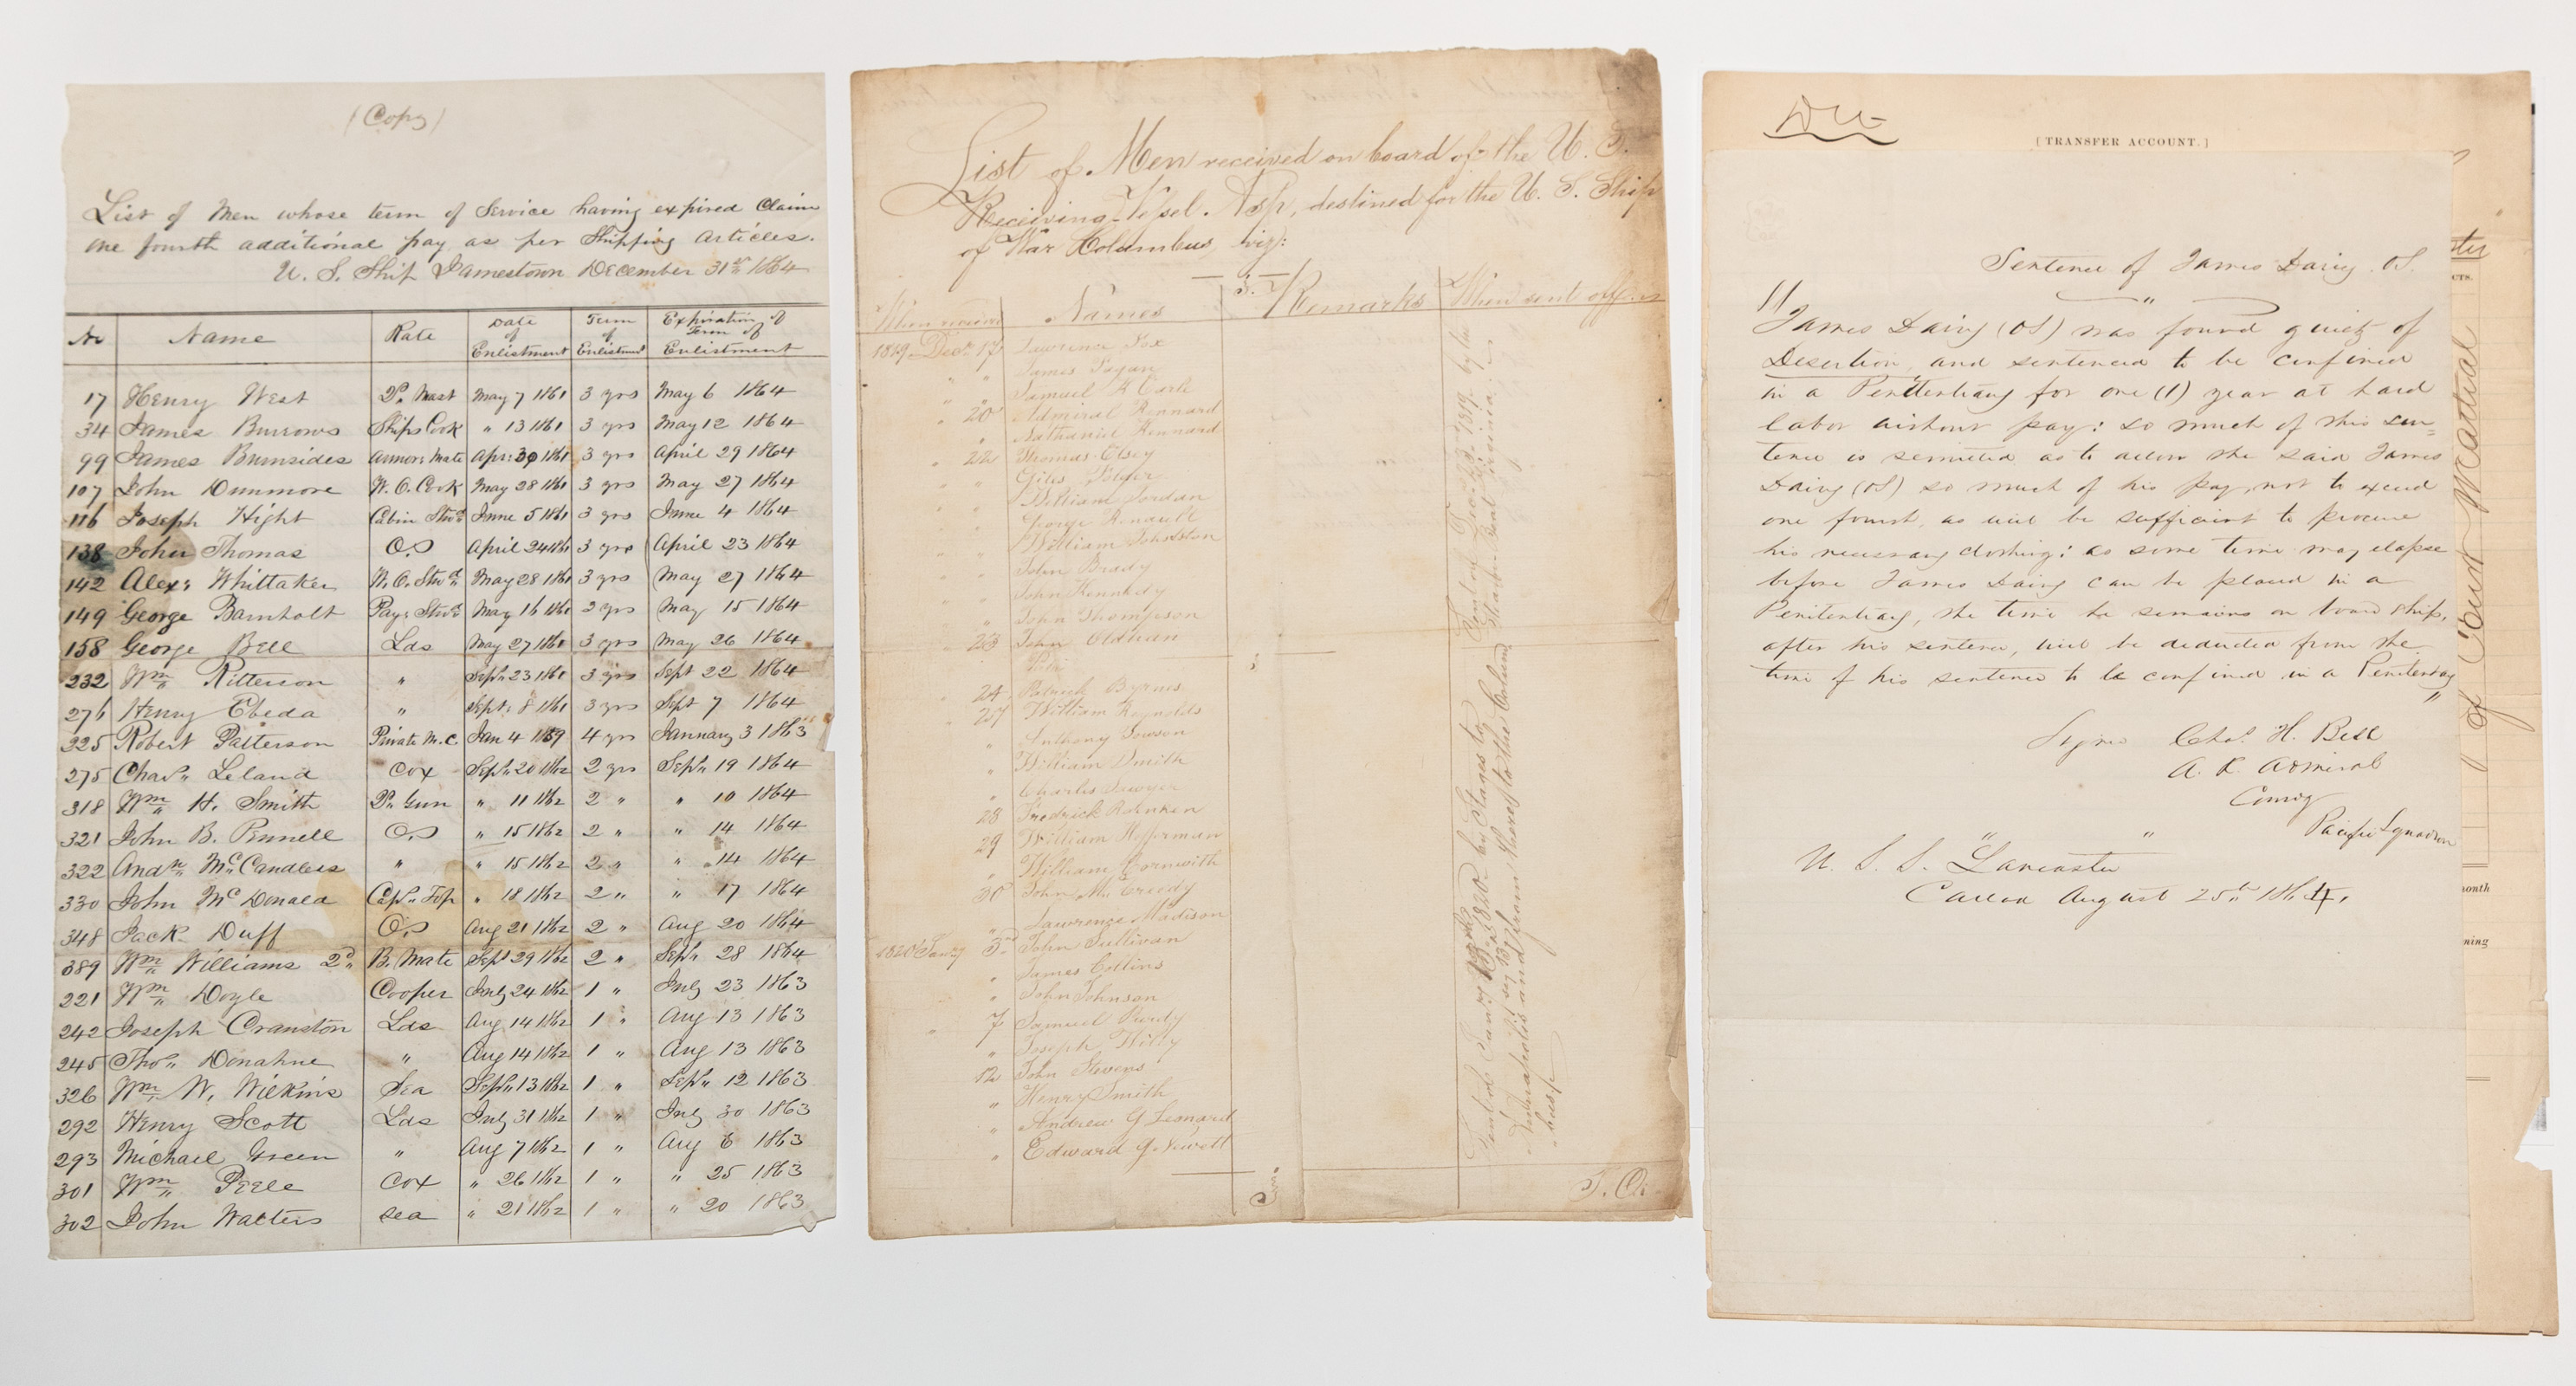 (Copy)
List of Men whose term of Service having expired Claim
one fourth additional pay as per Shipping Articles.
U. S. Ship Jamestown December 31st 1864
No Name Rate Date of Enlistment Term of Enlistment Expiration of Term of Enlistment
17 Henry West Qr. Mast May 7 1861 3 yrs May 6 1864
34 James Burrows Ships Cook " 13 1861 3 yrs May 12 1864
99 James Burnsides Armors Mate Apr: 30 1861 3 yrs April 29 1864
107 John Dunmore W. O. Cook May 28 1861 3 yrs May 27 1864
116 Joseph Hight Cabin Stwd June 5 1861 3 yrs June 4 1864
138 John Thomas O.S April 24 1861 3 yrs April 23 1864
142 Alexr Whittaker W. O. Stwd May 28 1861 3 yrs May 27 1864
149 George Barnholt Payr Stwd May 16 1861 3 yrs May 15 1864
158 George Bell Lds May 27 1861 3 yrs May 26 1864
232 Wm Ritterson " Sept 23 1861 3 yrs Sept 22 1864
276 Henry Ebeda " Sept: 8 1861 3 yrs Sept 7 1864
225 Robert Patterson Private M.C. Jan 4 1859 4 yrs January 3 1863
275 Chas Leland Cox Sept 20 1862 2 yrs Sept 19 1864
318 Wm H. Smith Qr Gun " 11 1862 2 " " 10 1864
321 John B. Pennell O.S " 15 1862 2 " " 14 1864
322 Andw McCandless " " 15 1862 2 " " 14 1864
330 John McDonald Capt Top " 18 1862 2 " " 17 1864
348 Jack Duff O.S Aug 21 1862 2 " Aug 20 1864
389 Wm Williams 2d B. Mate Sept 29 1862 2 " Sept 28 1864
221 Wm Doyle Cooper July 24 1862 1 " July 23 1863
242 Joseph Cranston Lds Aug 14 1862 1 " Aug 13 1863
245 Thos Donahue " Aug 14 1862 1 " Aug 13 1863
326 Wm W. Wilkins Sea Sept 13 1862 1 " Sept 12 1863
292 Henry Scott Lds July 31 1862 1 " July 30 1863
293 Michael Green " Aug 7 1862 1 " Aug 6 1863
301 Wm Peele Cox " 26 1862 1 " " 25 1863
302 John Walters Sea " 21 1862 1 " " 20 1863
List of Men received on board of the U. S.
Receiving Vessel Asp, destined for the U. S. Ship
of War Columbus, viz:
When received Names Remarks When sent off
1819 Decr. 17 Lawrence Fox
" " James Fagan
" " Samuel
" 20 Admiral Kennard
" Nathaniel Kennard
" 22 Thomas Elsey
" " Giles
" " William Jordan
" " George
" " William Johnston
" " John Brady
" " John Kennedy
" " John Thompson
" 23 John Oldhan
" 24 Patrick Byrnes
" 27 William Reynolds
" Anthony Towson
" William Smith
" Charles Sawyer
28 Fredrick
29 William Hefferman
" William Cornwith
30 John McCreedy
" Lawrence Madison
1820 Jany 3rd John Sullivan
" James Collins
" John Johnson
" 7 Samuel Purdy
" Joseph Willy
12 John Stevens
" Henry Smith
" Andrew G Leonard
" Edward G Newell
[TRANSFER ACCOUNT.]
Sentence of James Dairy O.S.
"
James Dairy (OS) was found guilty of
Desertion, and sentenced to be confined
in a Penitentiary for one (1) year at hard
labor without pay: so much of this sen=
tence is remitted as to allow the said James
Dairy (OS) so much of his pay, not to exceed
one fourth, as will be sufficient to procure
his necessary clothing: as some time may elapse
before James Dairy can be placed in a
Penitentiary, the time he remains on board ship,
after his sentence, will be deducted from the
time of his sentence to be confined in a Penitentiary
"
Signed Chas. H. Bell
A. R. Admiral
Comdg
Pacific Squadron
U. S. S. "Lancaster"
Callao August 25th 1864.
of Court Martial
CTS.
onth
ning